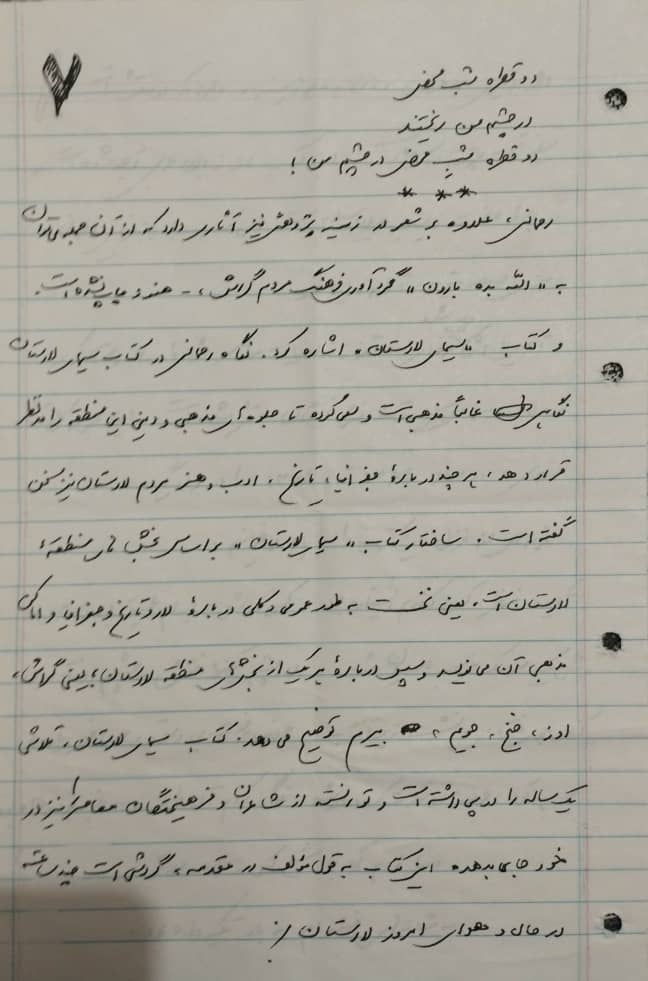 ۷
دو قطره شب محض
در چشم من ریختند
دو قطره شب محض در چشم من !
* * *
رحمانی، علاوه بر شعر در زمینه پژوهش نیز آثاری دارد که از آن جمله می‌توان
به «الله بده بارون» گردآوری فرهنگ مردم گراش، - هنوز چاپ نشده است.
و کتاب «سیمای لارستان» اشاره کرد. نگاه رحمانی در کتاب سیمای لارستان
نگاهی غالباً مذهبی است و سعی کرده تا جلوه‌های مذهبی و دینی این منطقه را مد نظر
قرار دهد، هر چند درباره‌ٔ جغرافیا، تاریخ، ادب و هنر مردم لارستان نیز سخن
گفته است. ساختار کتاب «سیمای لارستان» بر اساس بخش‌های منطقهٔ
لارستان است، یعنی نخست به طور عمومی و کلی درباره‌ٔ لار و تاریخ و جغرافیا و اماکن
مذهبی آن می‌نویسد و سپس درباره‌ٔ هر یک از بخش‌های منطقه لارستان، یعنی گراش،
اوز، خنج، جویم، بیرم توضیح می‌دهد. کتاب سیمای لارستان، تلاشی
یک ساله را در پی داشته است و توانسته از شاعران و فرهیختگان معاصر را نیز در
خود جای بدهد. این کتاب به قول مؤلف در مقدمه، گردشی است چند ساعته
در حال و هوای امروز لارستان.